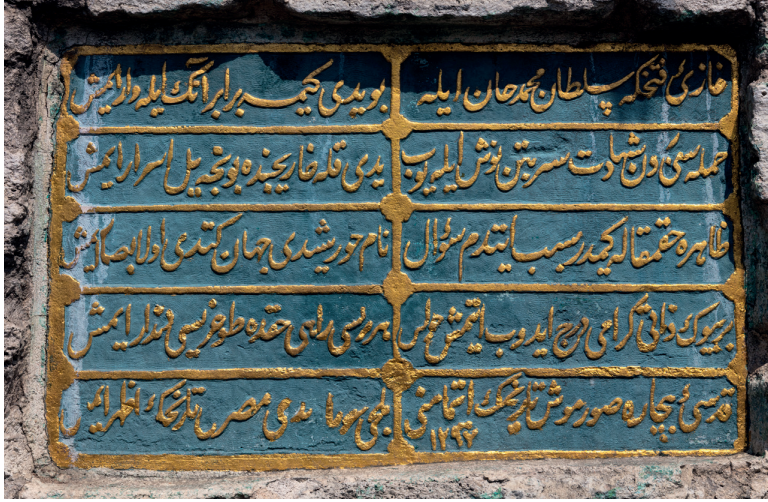 غازئ فتحكه سلطان محمد خان ايله
بويدى كيم برابر آنك ايله وار ايمش
جمله سى دن شهادت شربتن نوش ايليوب
يدى قله خارجنده بونجه ييل اسرار ايمش
ظاهره چقمقاله كيمدر سبب ايتدم سؤال
نام خورشيدى جهان كندى اولا
بر بيوك ذاتى كرامى درج ايدوب ايتمش
هر بريسى راهى حقده طوغريسى
قدسئ بيچاره صورمش تاريخك اتمامنى
تاريخك اظهر ايمش
١٢٩٧